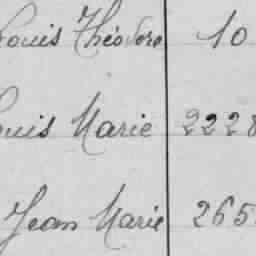 Louis Théodore 10
Louis Marie 2228
Jean Marie 265